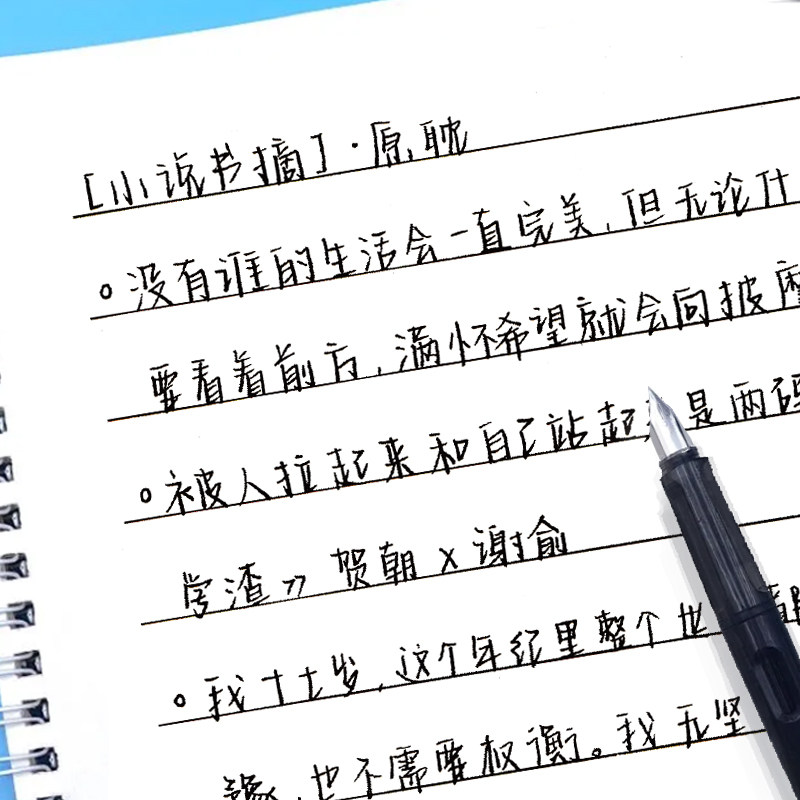 [小说书摘]·原耽
。没有谁的生活会一直完美,但无论什
要看着前方,满怀希望就会向披
。被人拉起来和自己站起 是两码
学渣》 贺朝x谢俞
。我十七岁,这个年纪里整个世
也不需要权衡。我无坚